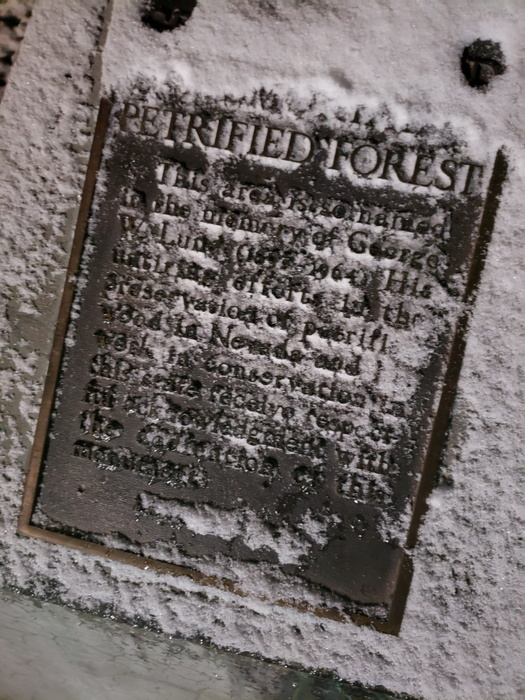 PETRIFIED FOREST
This area is so named
in the memory of George
W. Lund (1892-1964). His
untiring efforts in the
preservation of petrifi
wood in Nevada and
work in conservation in
this state receive
acknowledgment with
the dedication of this
monument